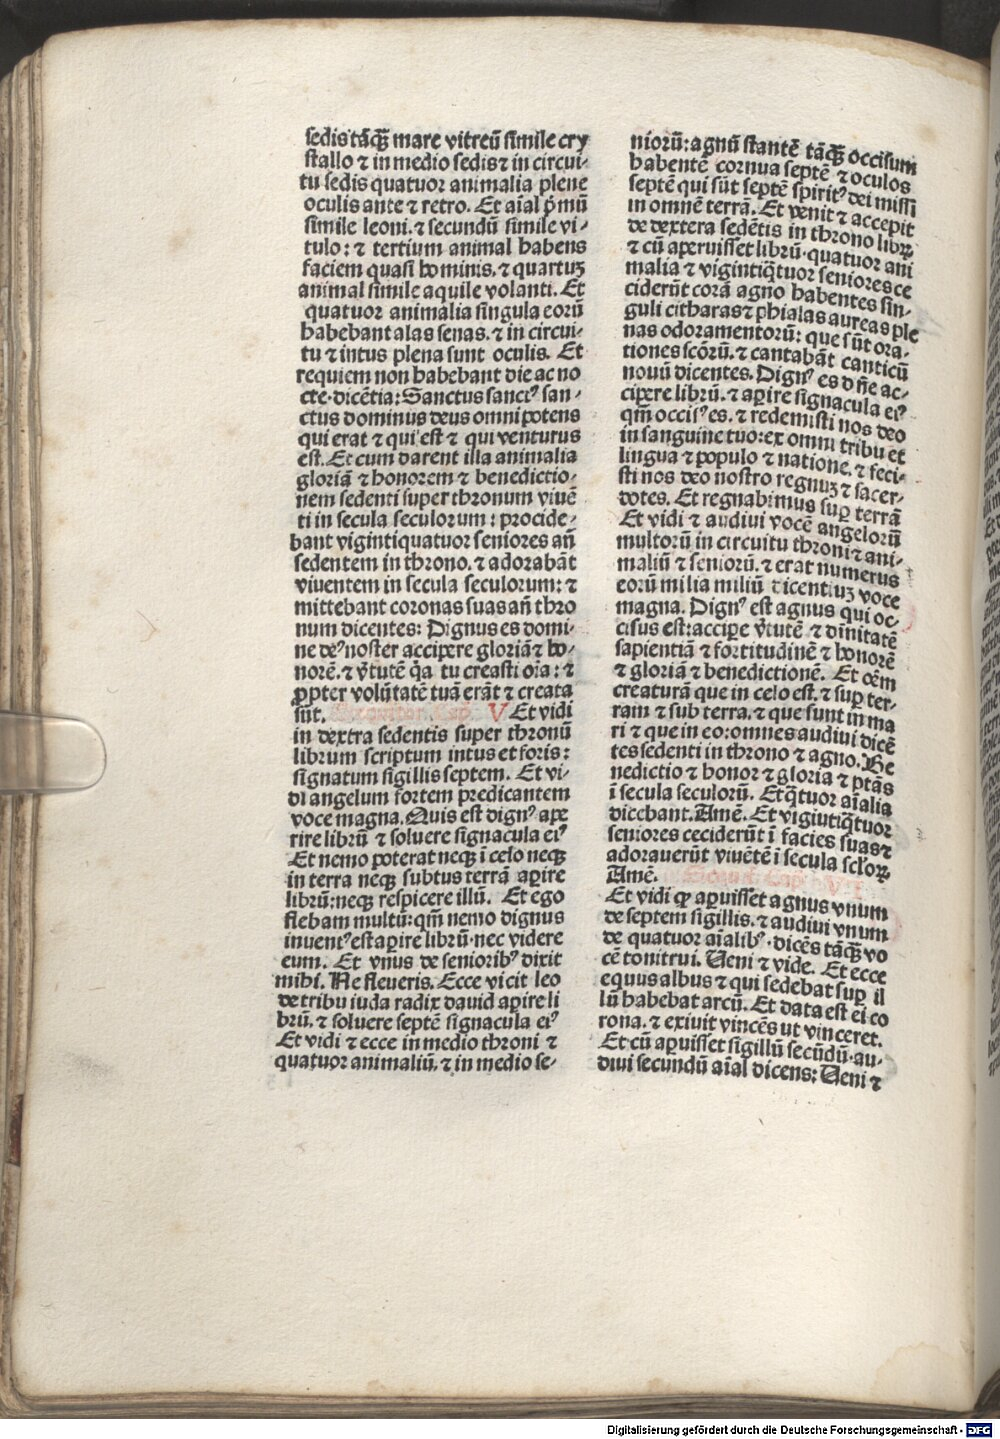 sedis tāꝙ̄ mare vitreū simile cry
stallo ⁊ in medio sedis ⁊ in circui⸗
tu sedis quatuor animalia plene
oculis ante ⁊ retro. Et aīal pͥmū
simile leoni. ⁊ secundū simile vi⸗
tulo: ⁊ tertium animal habens
faciem quasi hominis. ⁊ quartuꝫ
animal simile aquile volanti. Et
quatuor animalia singula eorū
habebant alas senas. ⁊ in circui⸗
tu ⁊ intus plena sunt oculis. Et
requiem non habebant die ac no
cte dicētia: Sanctus sanctꝰ san⸗
ctus dominus deus omnipotens
qui erat ⁊ qui est ⁊ qui venturus
est. Et cum darent illa animalia
gloriā ⁊ honorem ⁊ benedictio⸗
nem sedenti super thronum viuē
ti in secula seculorum: procide⸗
bant vigintiquatuor seniores añ
sedentem in throno. ⁊ adorabāt
viventem in secula seculorum: ⁊
mittebant coronas suas añ thro
num dicentes: Dignus es domi⸗
ne deꝰ noster accipere gloriā ⁊ ho⸗
norē. ⁊ v̓tutē qͥa tu creasti oīa: ⁊
ꝓpter volūtatē tuā erāt ⁊ creata
sūt. Sequitur Cap. V Et vidi
in dextra sedentis super thronū
librum scriptum intus et foris:
signatum sigillis septem. Et vi⸗
di angelum fortem predicantem
voce magna. Quis est dignꝰ ape
rire librū ⁊ soluere signacula eiꝰ
Et nemo poterat neqꝫ ī celo neqꝫ
in terra neqꝫ subtus terrā aꝑire
librū: neqꝫ respicere illū. Et ego
flebam multū: qm̄ nemo dignus
inuentꝰ est aꝑire librū nec videre
eum. Et vnus de senioribꝰ dixit
mihi. Ne fleueris. Ecce vicit leo
de tribu iuda radix david aꝑire li
brū. ⁊ soluere septē signacula eiꝰ
Et vidi ⁊ ecce in medio throni ⁊
quatuor animaliū. ⁊ in medio se⸗
niorū: agnū stantē tāꝙ̄ occisum
habentē cornua septē ⁊ oculos
septē qui sūt septē spiritꝰ dei missi
in omnē terrā. Et venit ⁊ accepit
de dextera sedētis in throno librꝝ
⁊ cū aperuisset librū quatuor ani
malia ⁊ vigintiq̄tuor seniores ce
ciderūt corā agno habentes sin⸗
guli citharas ⁊ phialas aureas ple
nas odoramentorū: que sūt ora⸗
tiones scōrū. ⁊ cantabāt canticū
novū dicentes. Dignꝰ es dñe ac⸗
cipere librū. ⁊ aꝑire signacula eiꝰ
qm̄ occisꝰ es. ⁊ redemisti nos deo
in sanguine tuo: ex omni tribu et
lingua ⁊ populo ⁊ natione. ⁊ feci⸗
sti nos deo nostro regnuꝫ ⁊ sacer⸗
dotes. Et regnabimus suꝑ terrā
Et vidi ⁊ audivi vocē angelorū
multorū in circuitu throni ⁊ ani⸗
maliū ⁊ seniorū. ⁊ erat numerus
eorū milia miliū dicentiuꝫ voce
magna. Dignꝰ est agnus qui oc⸗
cisus est: accipe v̓tutē ⁊ dīnitatē
sapientiā ⁊ fortitudinē ⁊ honorē
⁊ gloriā ⁊ benedictionē. Et oēm
creaturā que in celo est. ⁊ suꝑ ter⸗
ram ⁊ sub terra. ⁊ que sunt in ma
ri ⁊ que in eo: omnes audivi dicē
tes sedenti in throno ⁊ agno. Be
nedictio ⁊ honor ⁊ gloria ⁊ ptās
ī secula seculorū. Et q̄tuor aīalia
dicebant. Amē. Et vigiutiq̄tuor
seniores ceciderūt ī facies suas ⁊
adorauerūt viuētē ī secula sclorꝝ
Amē. Sequit Cap VI
Et vidi ꝙ aꝑuisset agnus vnum
de septem sigillis. ⁊ audivi vnum
de quatuor aīalibꝰ dicēs tāꝙ̄ vo
cē tonitrui. Veni ⁊ vide. Et ecce
equus albus ⁊ qui sedebat suꝑ il
lū habebat arcū. Et data est ei co
rona. ⁊ exiuit vincēs ut vinceret.
Et cū aꝑuisset sigillū secūdū au⸗
divi secundū aīal dicens: Veni ⁊
Digitalisierung gefördert durch die Deutsche Forschungsgemeinschaft - DFG